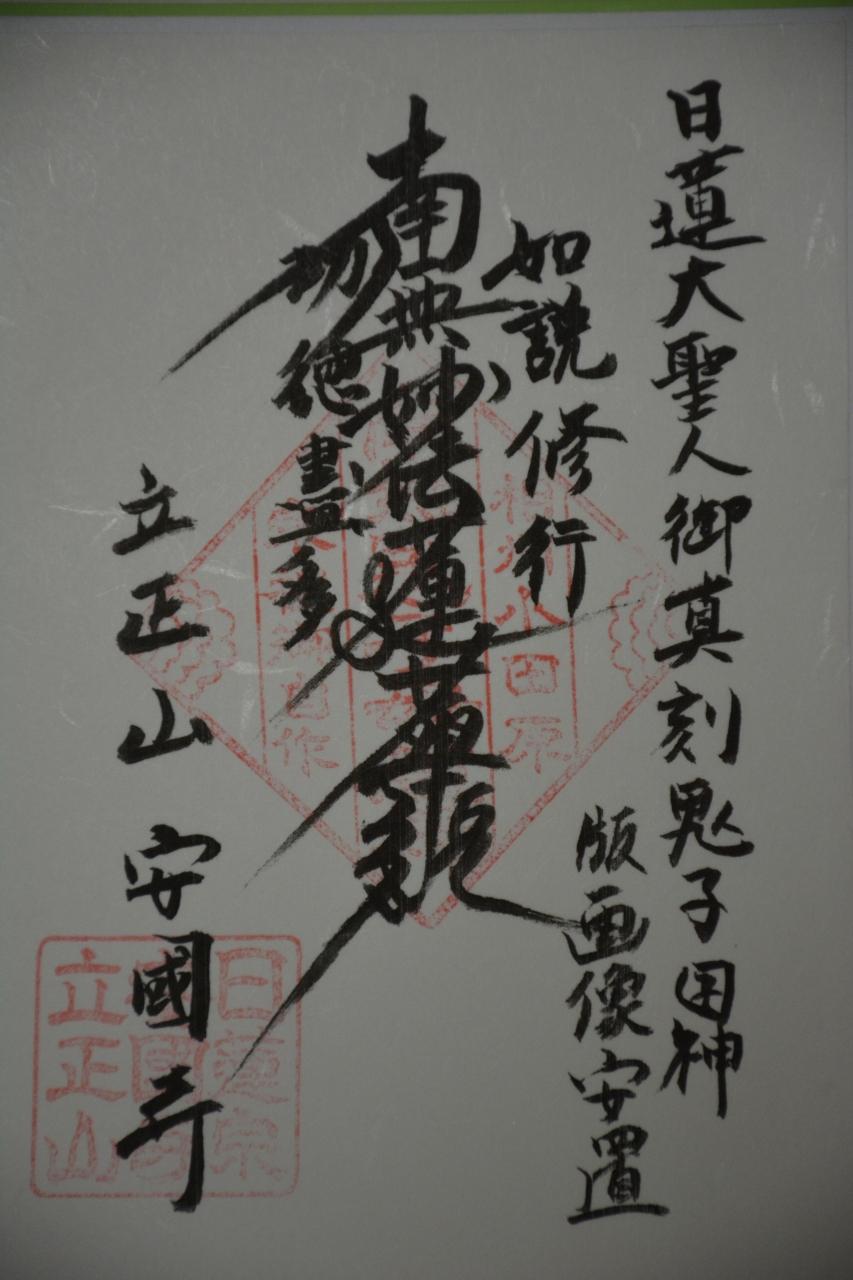 日蓮大聖人御真刻鬼子母神
版画像安置
如説修行
南無妙法蓮華経
功徳甚多
立正山 安國寺
相州小田原
日蓮宗
安國寺
立正山